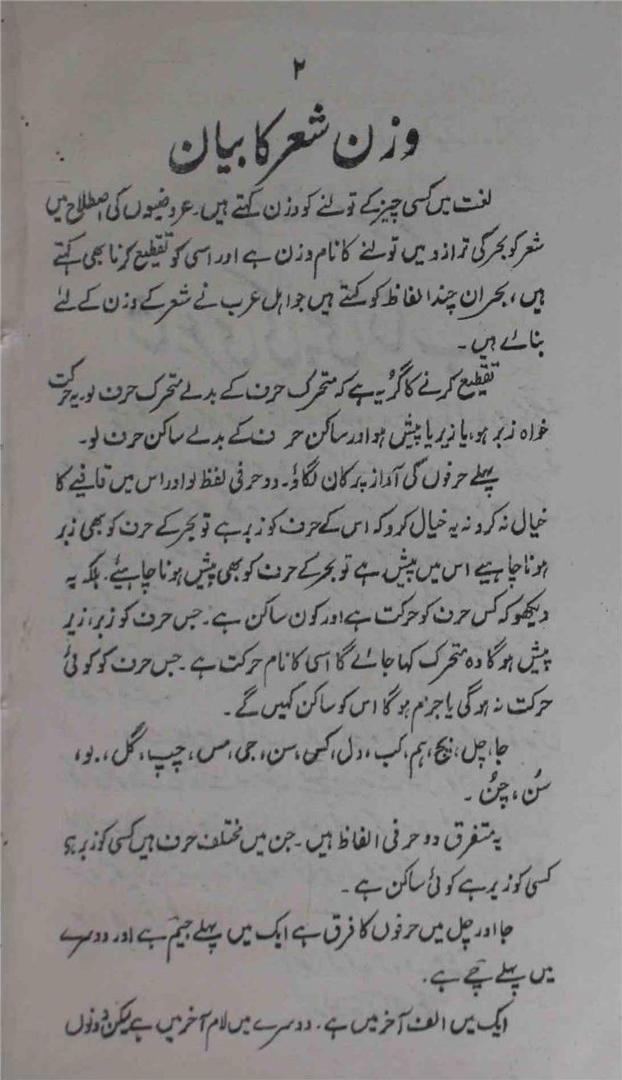 ۲
وزن شعر کا بیان
لغت میں کسی چیز کے تولنے کو وزن کہتے ہیں۔ عروضیوں کی اصطلاح میں
شعر کو بحر کی ترازو میں تولنے کا نام وزن ہے اور اسی کو تقطیع کرنا بھی کہتے
ہیں، بحر ان چند الفاظ کو کہتے ہیں جو اہل عرب نے شعر کے وزن کے لئے
بنائے ہیں۔
تقطیع کرنے کا گُر یہ ہے کہ متحرک حرف کے بدلے متحرک حرف لو۔ یہ حرکت
خواہ زبر ہو، یا زیر یا پیش ہو اور ساکن حرف کے بدلے ساکن حرف لو۔
پہلے حرفوں کی آواز پر کان لگاؤ۔ دو حرفی لفظ لو اور اس میں قافیے کا
خیال نہ کرو نہ یہ خیال کرو کہ اس کے حرف کو زبر ہے تو بحر کے حرف کو بھی زبر
ہونا چاہیے اس میں پیش ہے تو بحر کے حرف کو بھی پیش ہونا چاہیئے۔ بلکہ یہ
دیکھو کہ کس حرف کو حرکت ہے اور کون ساکن ہے۔ جس حرف کو زبر، زیر
پیش ہوگا وہ متحرک کہا جائے گا اسی کا نام حرکت ہے۔ جس حرف کو کوئی
حرکت نہ ہوگی یا جزم ہوگا اس کو ساکن کہیں گے۔
جا، چل، بچ، ہم، کب، دل، کسی، سن، جی، مس، چپ، گل، بو،
سُن، چُن۔
یہ متفرق دو حرفی الفاظ ہیں۔ جن میں مختلف حرف ہیں کسی کو زبر ہے
کسی کو زیر ہے کوئی ساکن ہے۔
جا اور چل میں حرفوں کا فرق ہے ایک میں پہلے جیم ہے اور دوسرے
میں پہلے چے ہے۔
ایک میں الف آخر میں ہے۔ دوسرے میں لام آخر میں ہے لیکن دونوں